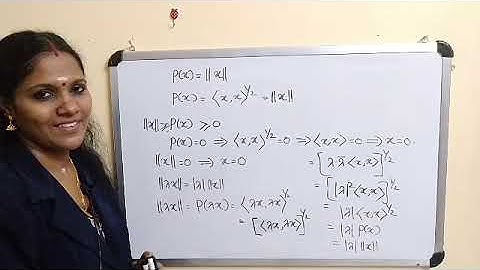 P(x) = ||x||
P(x) = ⟨x, x⟩^{1/2} = ||x||
||x|| = P(x) ⩾ 0
P(x) = 0 ⟹ ⟨x, x⟩^{1/2} = 0 ⟹ ⟨x, x⟩ = 0 ⟹ x = 0
||x|| = 0 ⟹ x = 0
||λx|| = |λ| ||x||
||λx|| = P(λx) = ⟨λx, λx⟩^{1/2}
= [⟨λx, λx⟩]^{1/2}
= [λ λ̄ ⟨x, x⟩]^{1/2}
= [|λ|² ⟨x, x⟩]^{1/2}
= |λ| ⟨x, x⟩^{1/2}
= |λ| P(x)
= |λ| ||x||